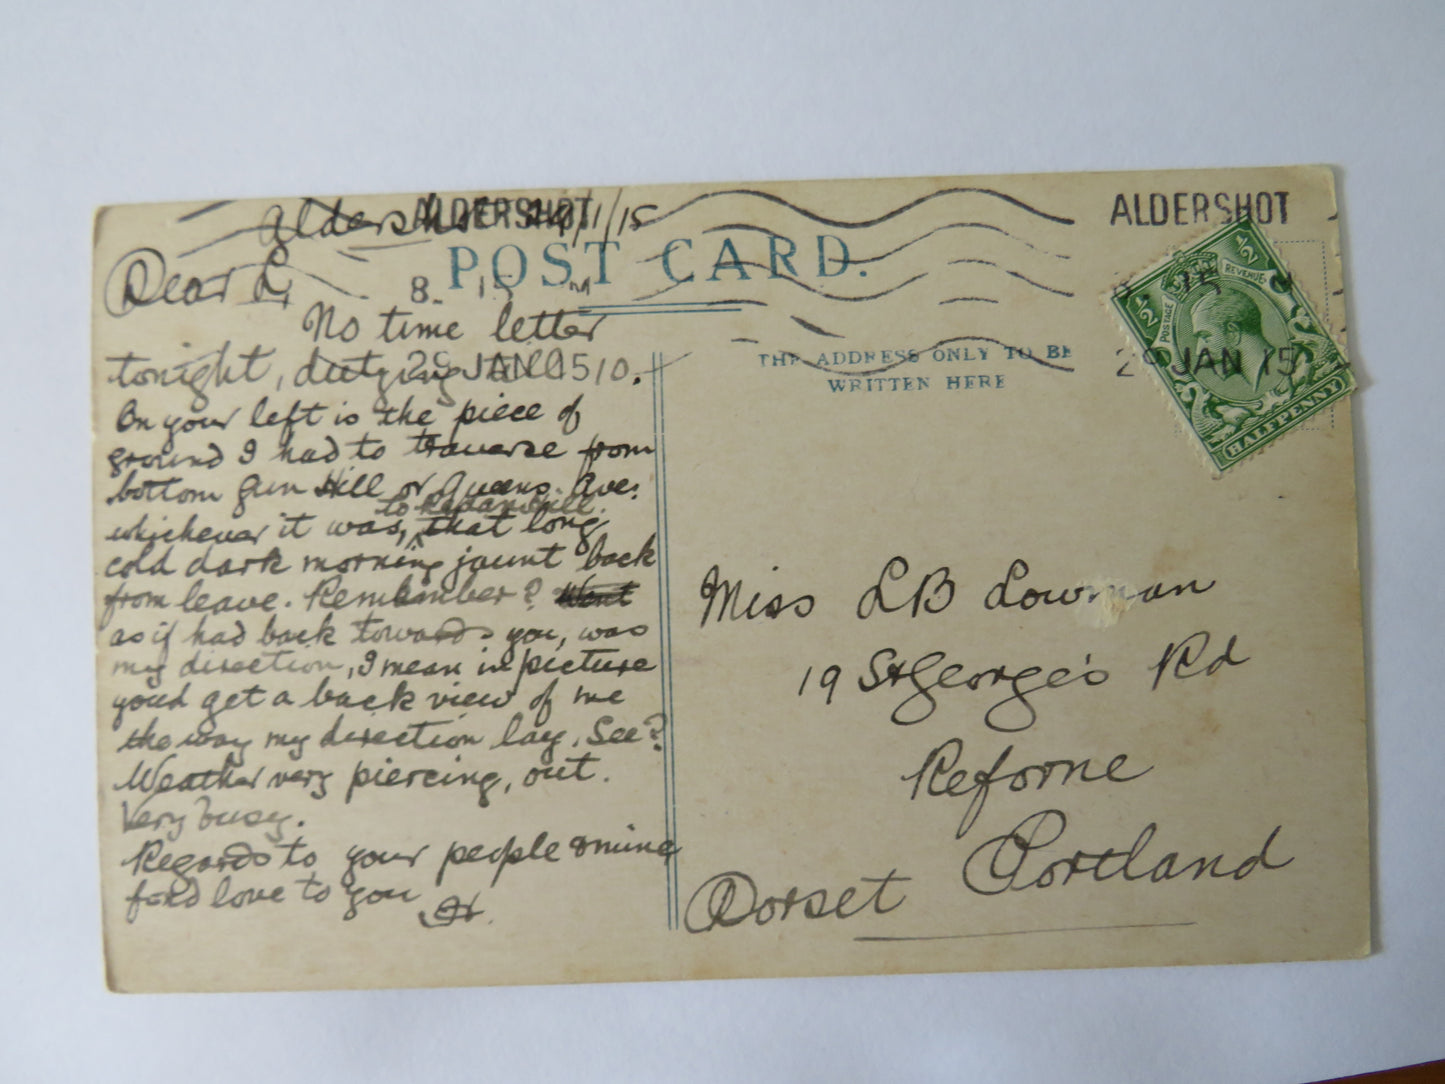 Aldershot /1/15
ALDERSHOT
8. 15 PM
29 JAN 15
POST CARD.
Dear L,
No time letter
tonight, dutying till 10.
On your left is the piece of
ground I had to traverse from
bottom Gun Hill or Queens Ave:
to Redan Hill.
whichever it was, that long
cold dark morning jaunt back
from leave. Remember? Went
as if had back towards you, was
my direction, I mean in picture
youd get a back view of me
the way my direction lay. See?
Weather very piercing, out.
Very busy.
Regards to your people & mine
fond love to you
THE ADDRESS ONLY TO BE
WRITTEN HERE
ALDERSHOT
15
29 JAN 15
½
½
POSTAGE
REVENUE
HALFPENNY
Miss LB Lowman
19 St George's Rd
Reforne
Portland
Dorset